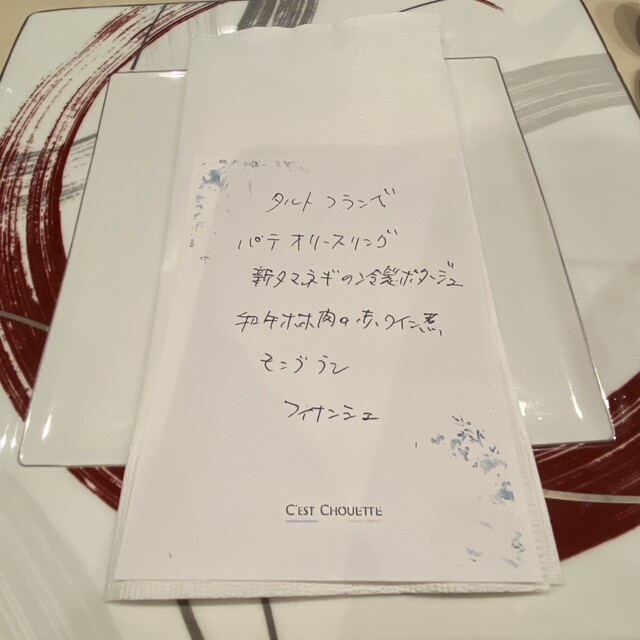 タルト フランベ
パテ オリースリング
新タマネギの冷製ポタージュ
和牛ホホ肉の赤ワイン煮
モンブラン
フィナンシェ
C'EST CHOUETTE